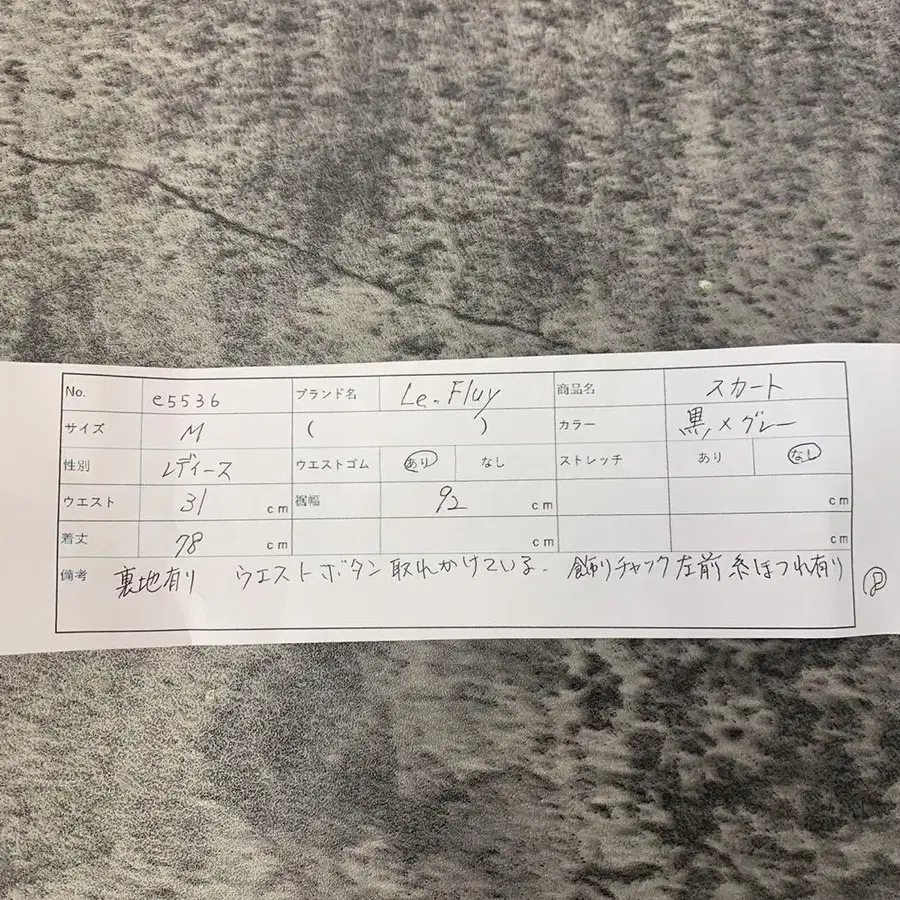 No. e5536 ブランド名 Le.Fluy 商品名 スカート
サイズ M ( ) カラー 黒×グレー
性別 レディース ウエストゴム あり なし ストレッチ あり なし
ウエスト 31 cm 裾幅 92 cm cm
着丈 78 cm cm cm
備考 裏地有り ウエストボタン取れかけている. 飾りチャック左前糸ほつれ有り
8